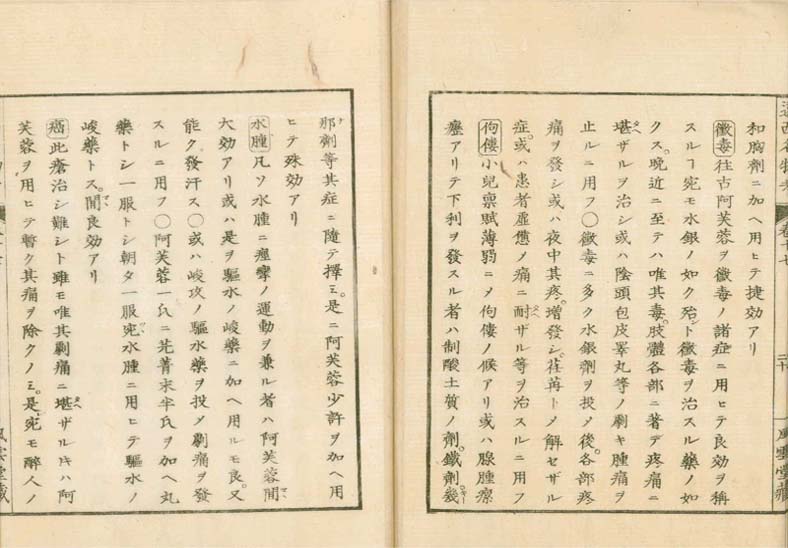 和胸劑ニ加ヘ用ヒテ捷効アリ
黴毒往古阿芙蓉ヲ黴毒ノ諸症ニ用ヒテ良効ヲ稱
スルヿ宛モ水銀ノ如ク殆ント黴毒ヲ治スル藥ノ如
クス。晩近ニ至テハ唯其毒。肢體各部ニ著テ疼痛ニ
堪ザルヲ治シ或ハ陰頭包皮睾丸等ノ劇キ腫痛ヲ
止ルニ用フ〇黴毒ニ多ク水銀劑ヲ投メ後。各部疼
痛ヲ發シ或ハ夜中其疼。増發シ。荏苒トメ解セザル
症。或ハ患者虚憊メ痛ニ耐ザル等ヲ治スルニ用フ
佝僂小兒稟賦薄弱ニメ佝僂ノ候アリ或ハ腺腫瘰
癧アリテ下利ヲ發スル者ハ制酸土質ノ劑。鐵劑幾
那劑等其症ニ隨テ擇ミ。是ニ阿芙蓉少許ヲ加ヘ用
ヒテ殊効アリ
水腫凡ソ水腫ニ痙攣ノ運動ヲ兼ル者ハ阿芙蓉間
大効アリ或ハ是ヲ驅水ノ峻藥ニ加ヘ用ルモ良。又
能ク發汗ス〇或ハ峻攻ノ驅水藥ヲ投メ劇痛ヲ發
スルニ用フ〇阿芙蓉一氏ニ芫菁末半氏ヲ加ヘ丸
藥トシ一服トシ朝夕一服宛水腫ニ用ヒテ驅水ノ
峻藥トス。間良効アリ
癌此瘡治シ難シト雖モ唯其劇痛ニ堪ザルㇳキハ阿
芙蓉ヲ用ヒテ暫ク其痛ヲ除クノミ。是宛モ醉人ノ
風雲堂藏